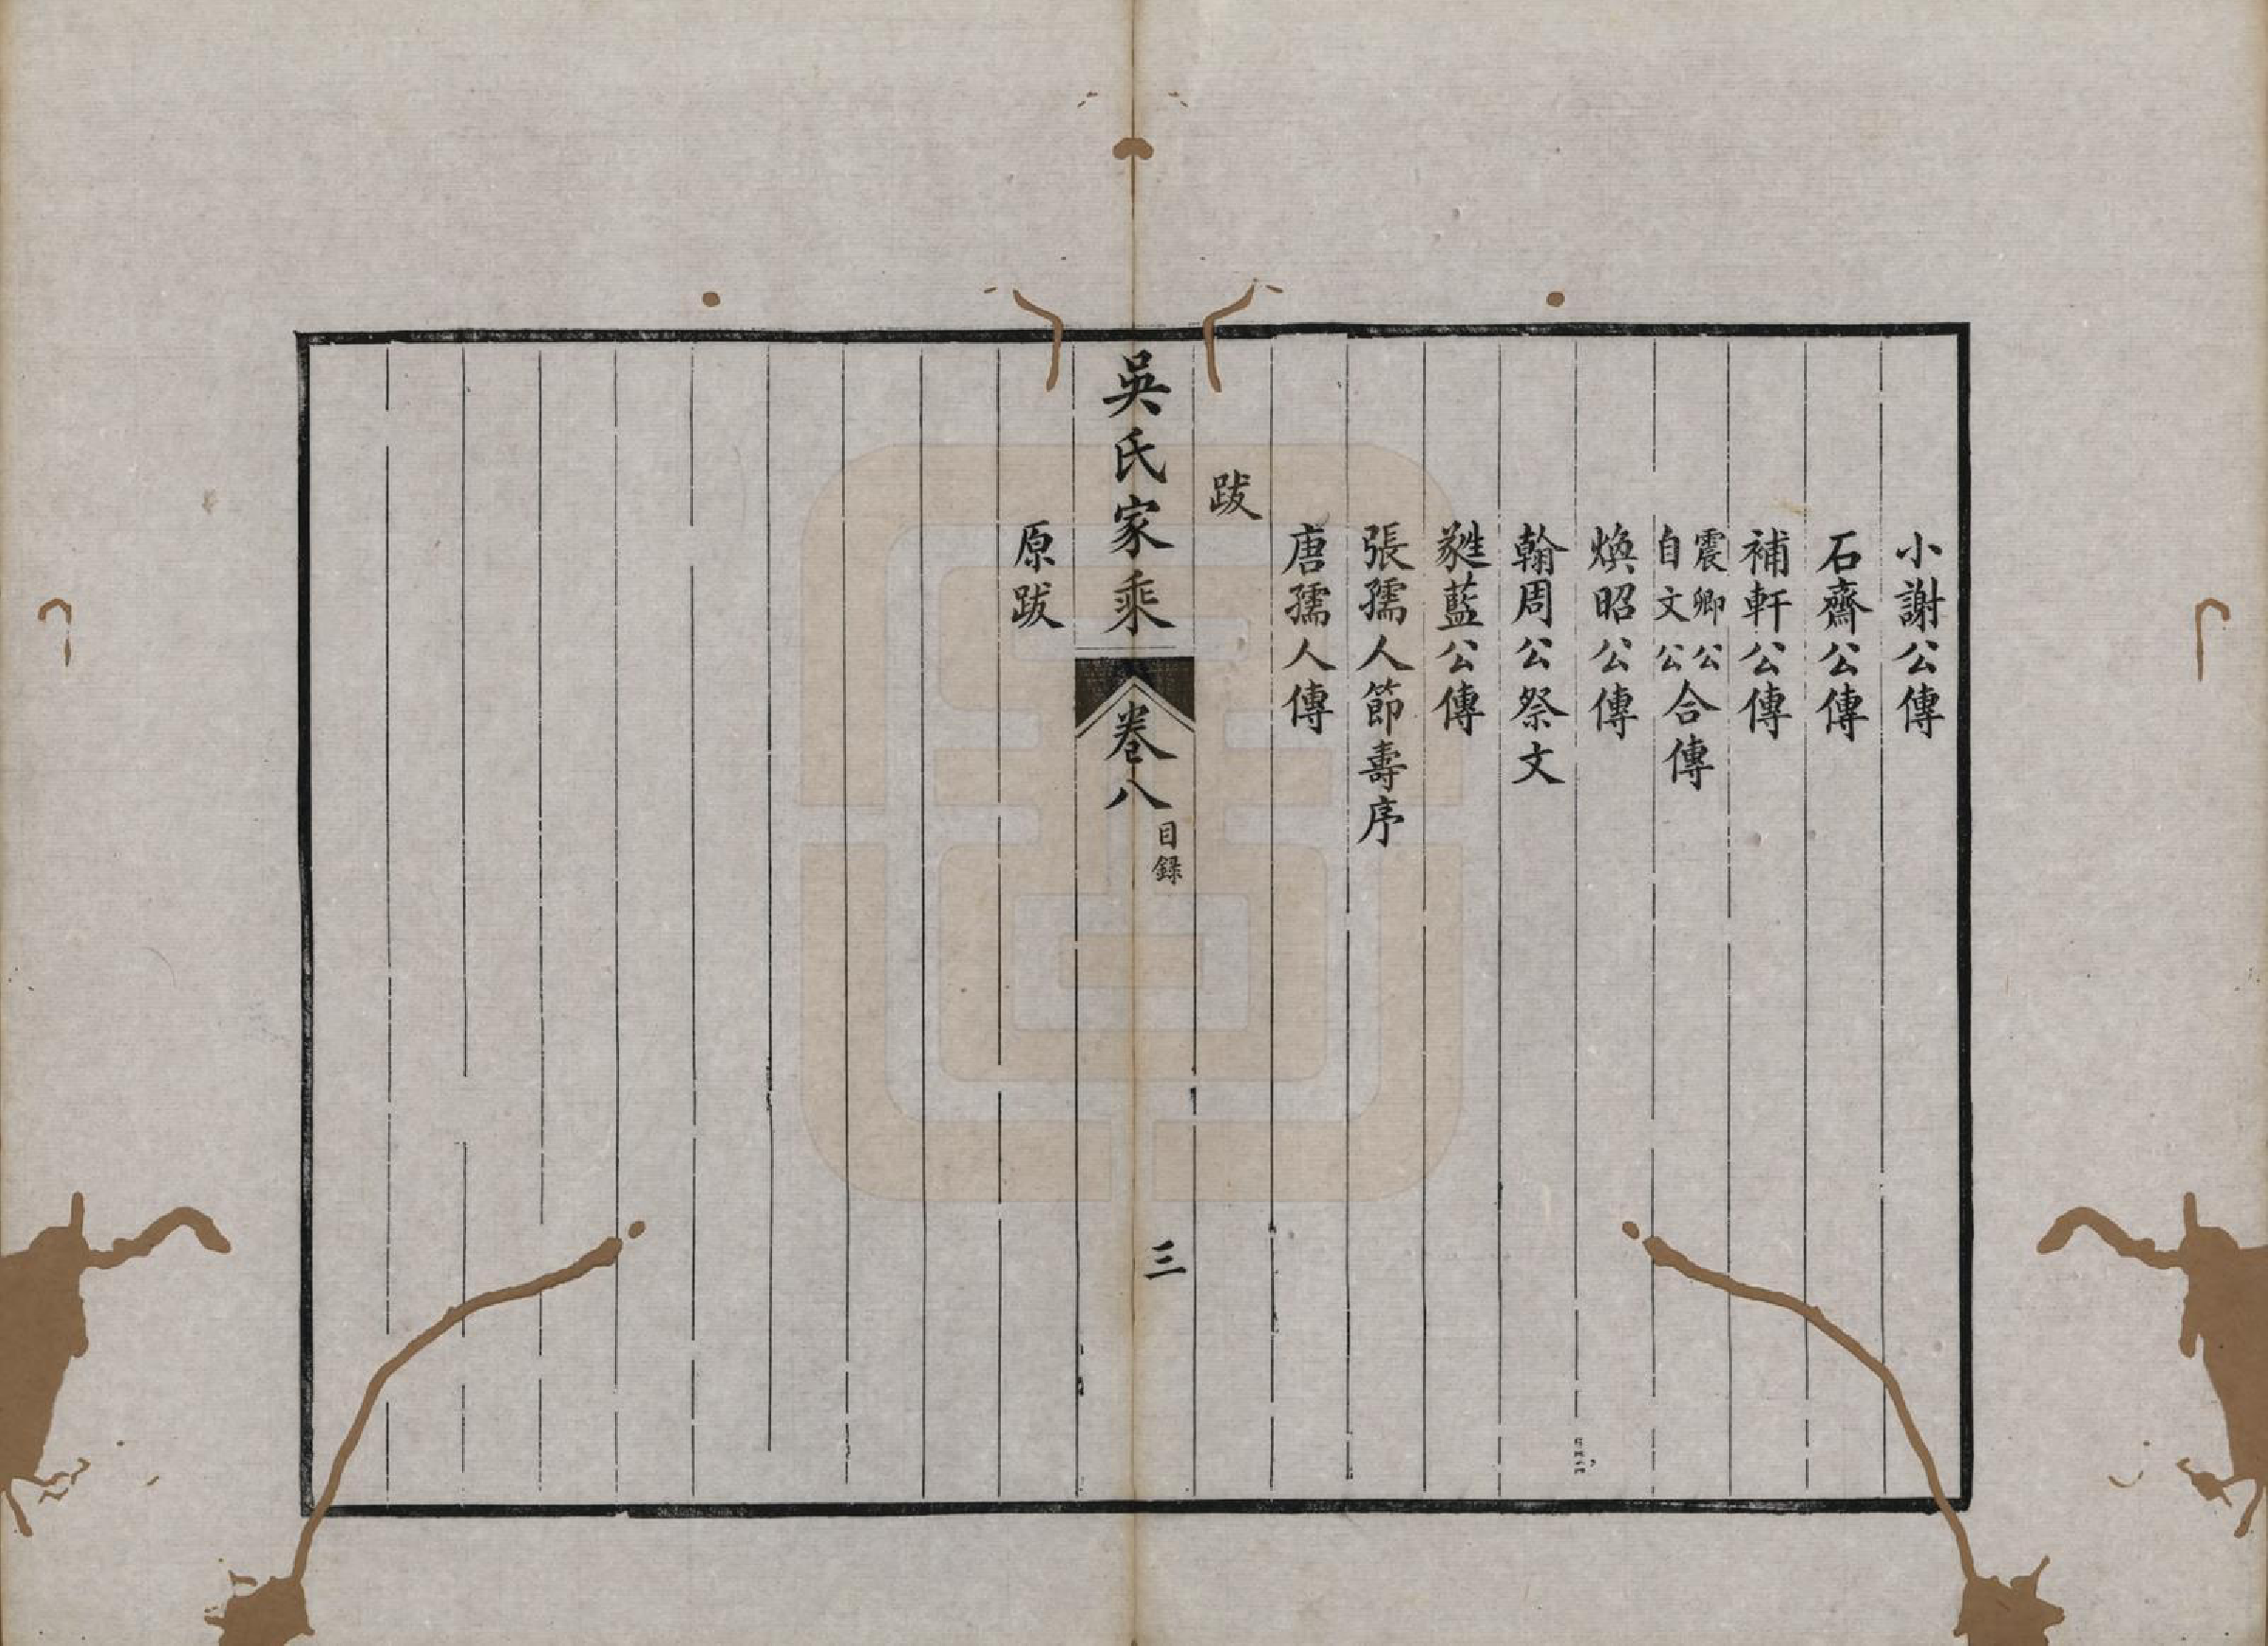 小謝公傳
石齋公傳
補軒公傳
震卿公
自文公
合傳
煥昭公傳
翰周公祭文
甤藍公傳
張孺人節壽序
唐孺人傳
跋
吳氏家乘
卷八
目録
三
原跋